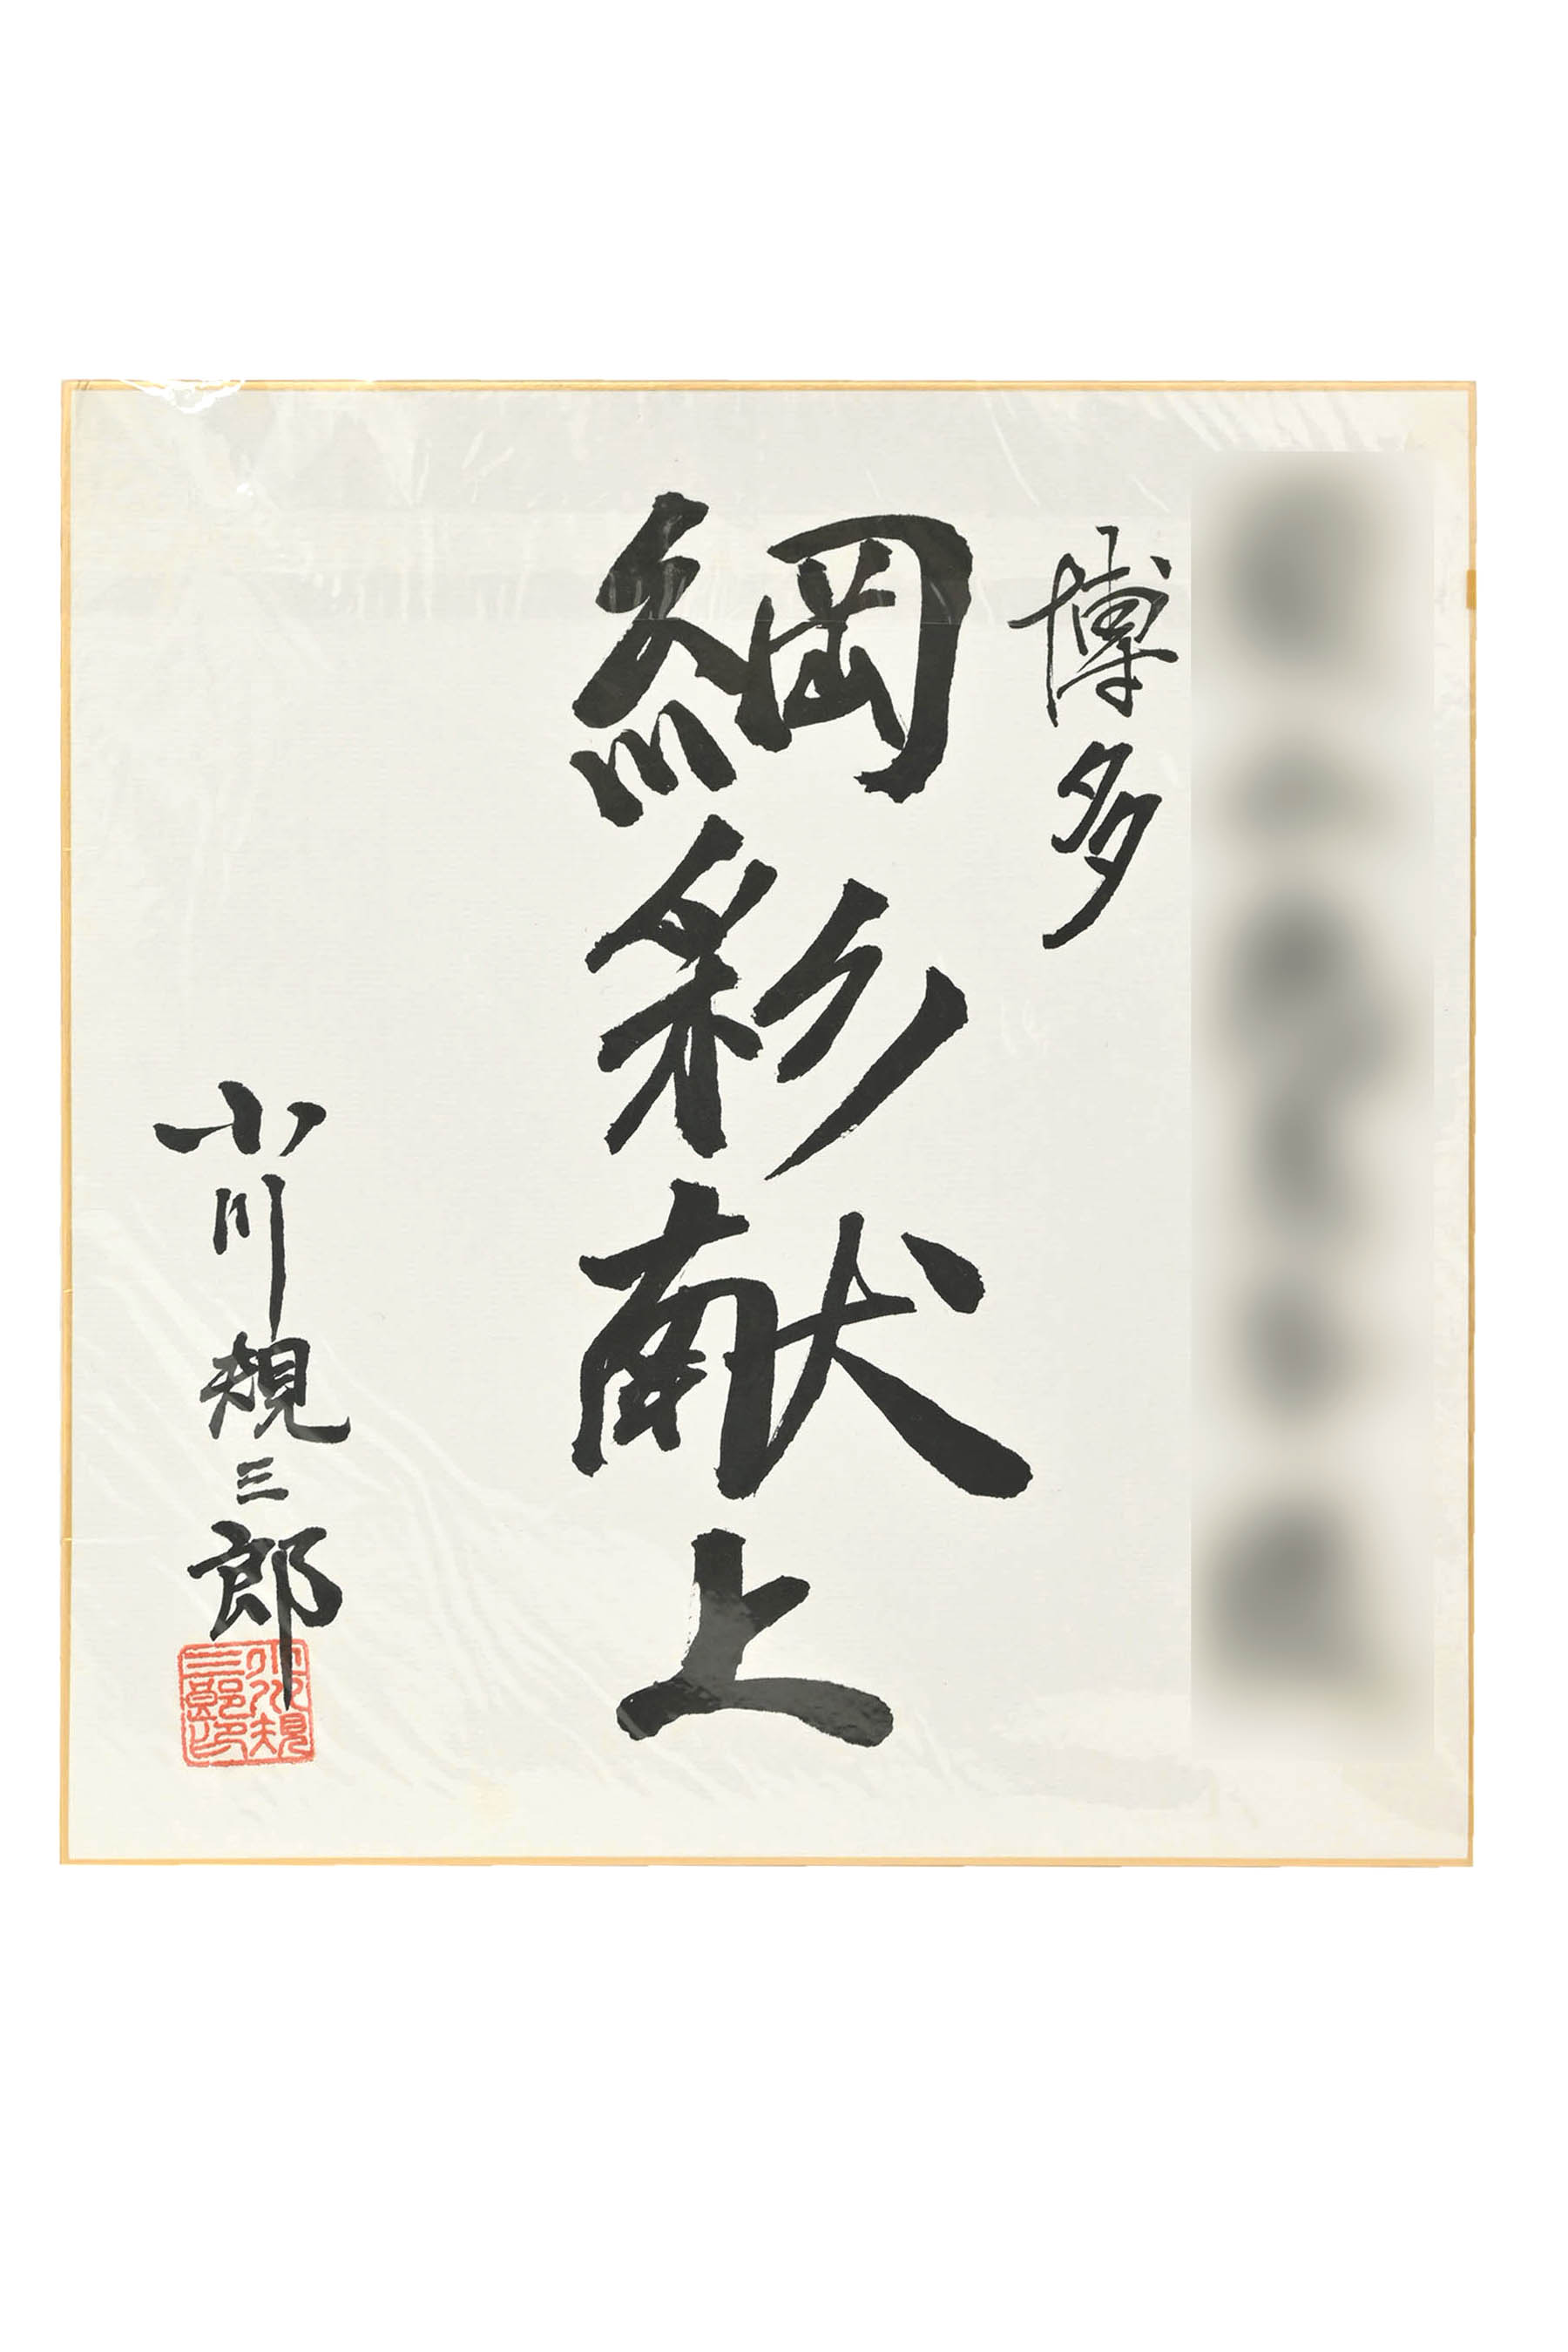 博多
綱彩献上
小川規三郎
小川規三郎印